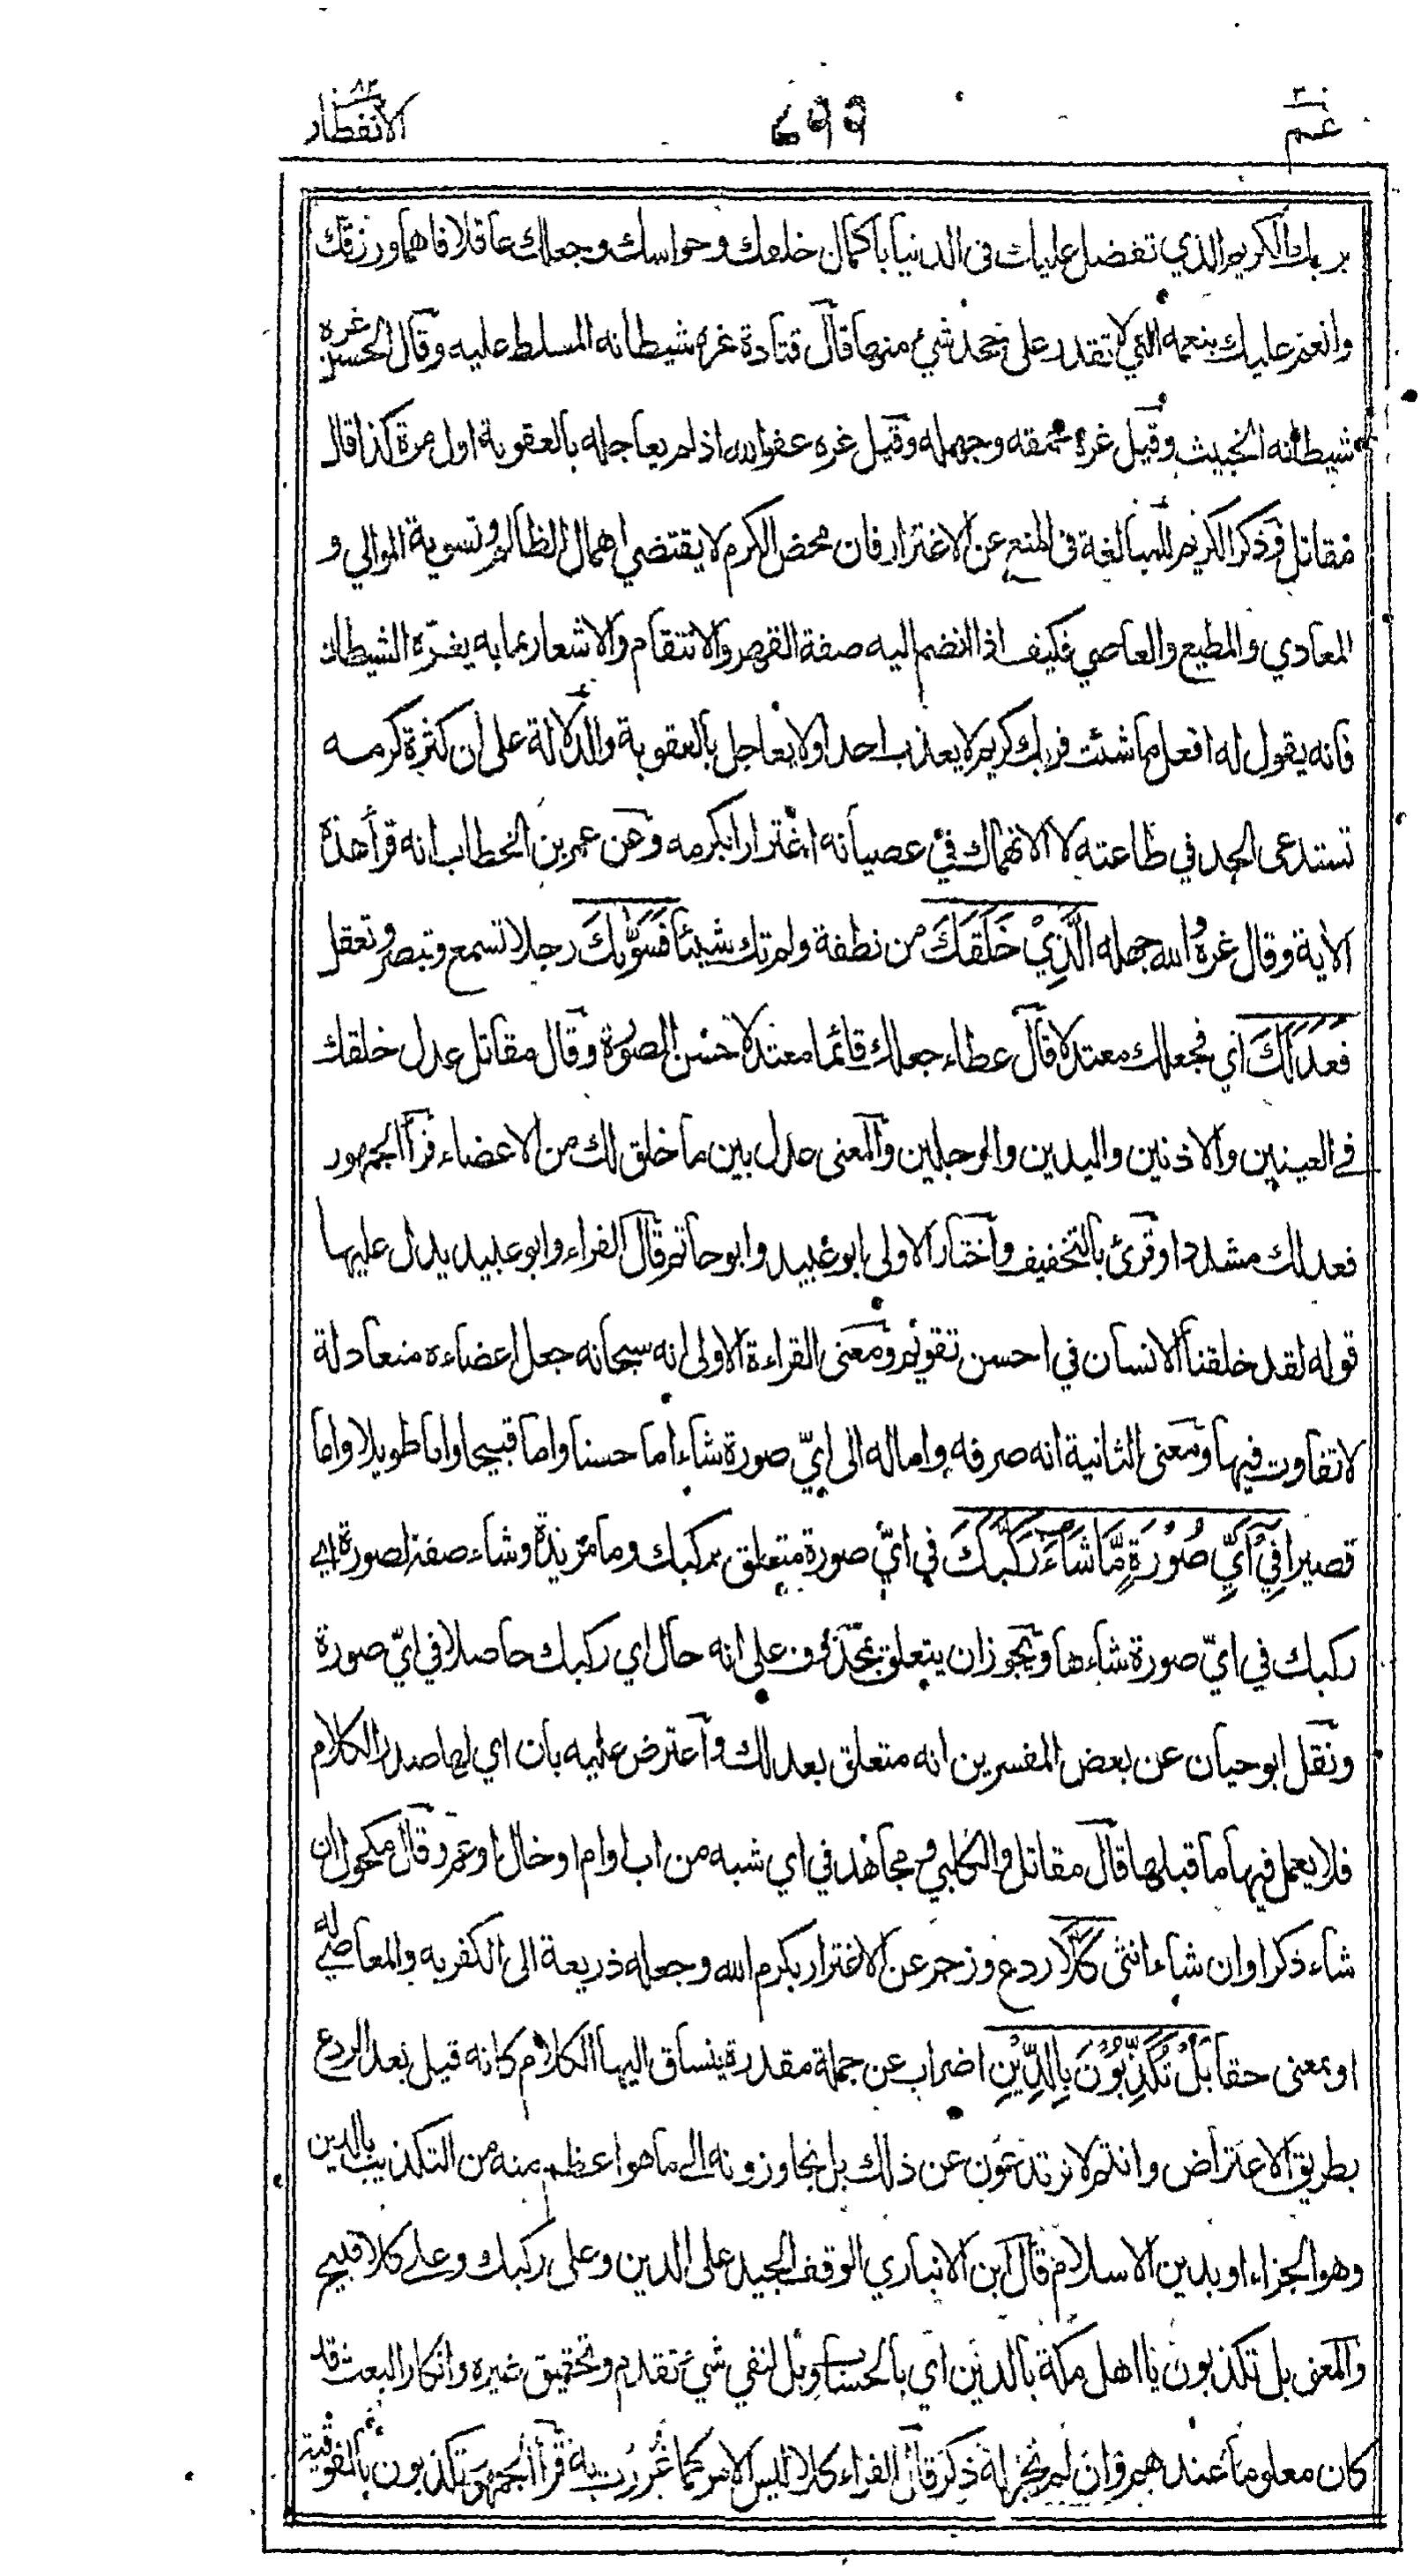 عم ٣٠
٢٩٩
الانفطار ٨٢
بربك الكريم الذي تفضل عليك في الدنيا باكمال خلقك وحواسك وجعلك عاقلا فاهما ورزقك
وانعم عليك بنعمه التي لا تقدر على جحد شيء منها قال قتادة غره شيطانه المسلط عليه وقال الحسن غره
شيطانه الخبيث وقيل غره حمقه وجهله وقيل غره عفو الله اذ لم يعاجله بالعقوبة اول مرة كذا قال
مقاتل وذكر الكريم للمبالغة في المنع عن الاغترار فان محض الكرم لا يقتضي اهمال الظالم وتسوية الموالي و
المعادي والمطيع والعاصي فكيف اذا انضم اليه صفة القهر والانتقام والاشعار بما به يغرّه الشيطان
فانه يقول له افعل ما شئت فربك كريم لا يعذب احدا ولا يعاجل بالعقوبة والدلالة على ان كثرة كرمه
تستدعي الجد في طاعته لا الانهماك في عصيانه اغترارا بكرمه وعن عمر بن الخطاب انه قرأ هذه
الاية وقال غره والله جهله الَّذِيْ خَلَقَكَ من نطفة ولم تك شيئا فَسَوّٰىكَ رجلا تسمع وتبصر وتعقل
فَعَدَلَكَ اي فجعلك معتدلا قال عطاء جعلك قائما معتدلا حسن الصورة وقال مقاتل عدل خلقك
في العينين والاذنين واليدين والرجلين والمعنى عدل بين ما خلق لك من الاعضاء قرأ الجمهور
فعدلك مشددا وقرئ بالتخفيف واختار الاولى ابو عبيد وابو حاتم قال الفراء وابو عبيد يدل عليها
قوله لقد خلقنا الانسان في احسن تقويم ومعنى القراءة الاولى انه سبحانه جعل اعضاءه متعادلة
لا تفاوت فيها ومعنى الثانية انه صرفه واماله الى ايّ صورة شاء اما حسنا واما قبيحا واما طويلا واما
قصيرا فِيْٓ اَيِّ صُوْرَةٍ مَّا شَاءَ رَكَّبَكَ في ايّ صورة متعلق بركبك وما مزيدة وشاء صفة لصورة اي
ركبك في ايّ صورة شاءها ويجوز ان يتعلق بمحذوف على انه حال اي ركبك حاصلا في ايّ صورة
ونقل ابو حيان عن بعض المفسرين انه متعلق بعدلك واعترض عليه بان اي لها صدر الكلام
فلا يعمل فيها ما قبلها قال مقاتل والكلبي ومجاهد في اي شبه من اب او ام او خال او عم وقال مكحول ان
شاء ذكرا وان شاء انثى كَلَّا ردع وزجر عن الاغترار بكرم الله وجعله ذريعة الى الكفر به والمعاصي له
او بمعنى حقا بَلْ تُكَذِّبُوْنَ بِالدِّيْنِ اضراب عن جملة مقدرة ينساق اليها الكلام كانه قيل بعد الردع
بطريق الاعتراض وانتم لا ترتدعون عن ذلك بل تجاوزونه الى ما هو اعظم منه من التكذيب بالدين
وهو الجزاء او بدين الاسلام قال ابن الانباري الوقف الجيد على الدين وعلى ركبك وعلى كلا قبيح
والمعنى بل تكذبون يا اهل مكة بالدين اي بالحساب وبل لنفي شيء تقدم وتحقيق غيره وانكار البعث قد
كان معلوما عندهم وان لم يجر له ذكر قال الفراء كلا ليس الامر كما غررت به قرأ الجمهور تكذبون بالفوقية